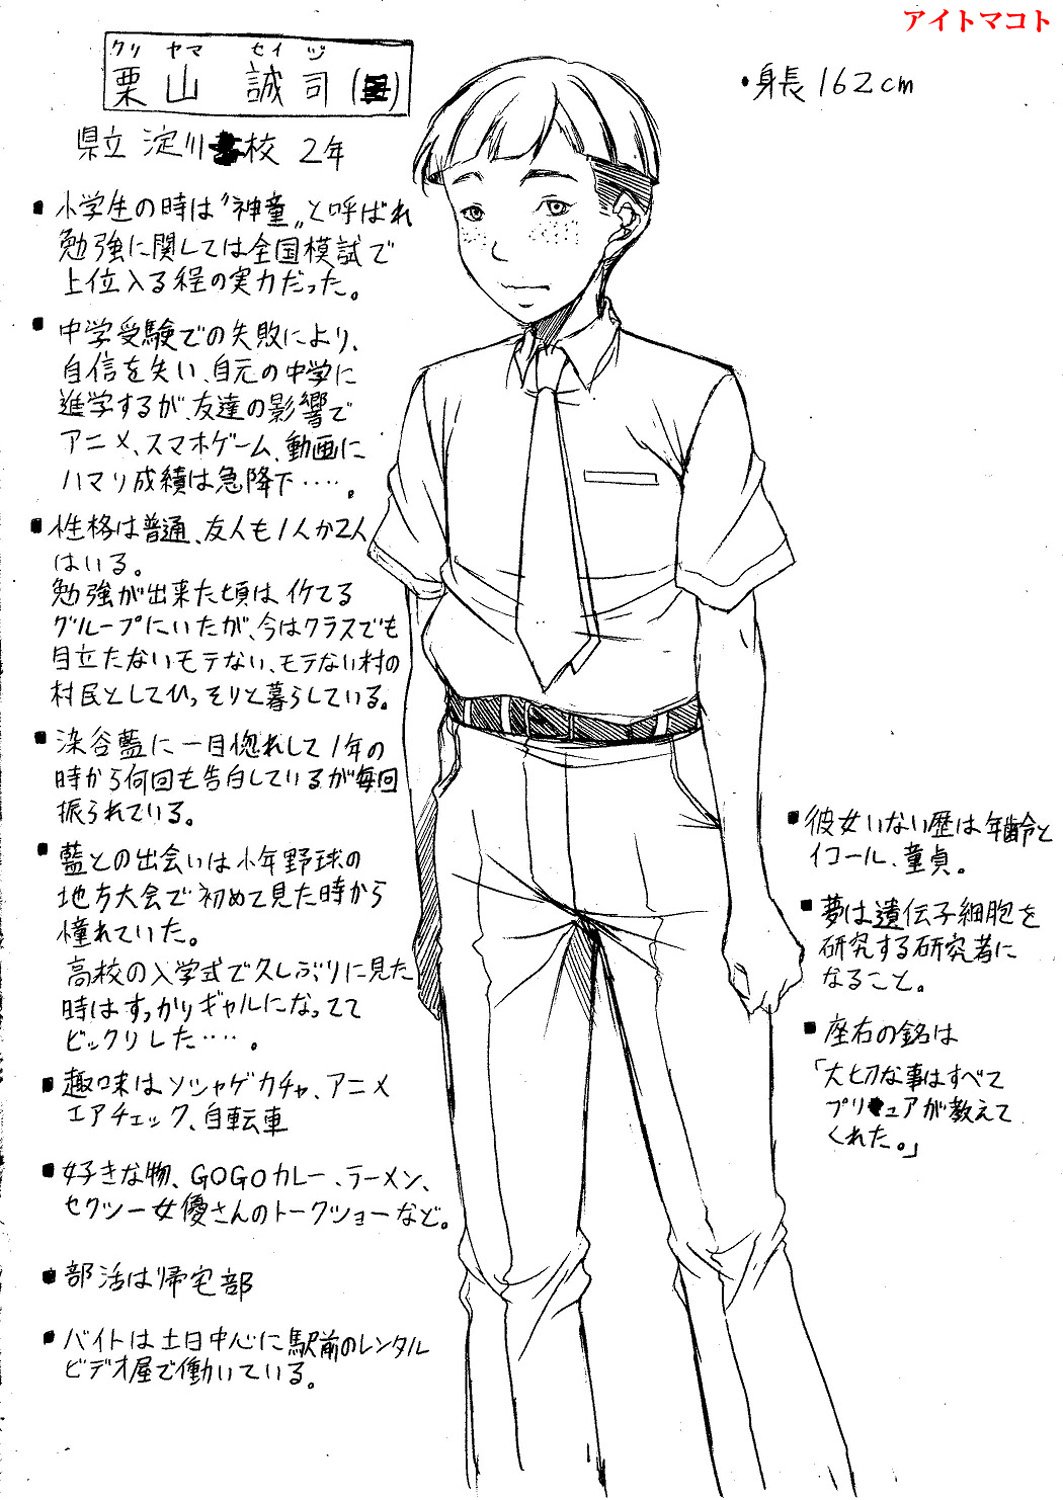 アイトマコト
クリ ヤマ セイジ
栗山 誠司(
・身長162cm
県立 淀川 校 2年
▪小学生の時は〝神童〟と呼ばれ
勉強に関しては全国模試で
上位入る程の実力だった。
▪中学受験での失敗により、
自信を失い、自元の中学に
進学するが、友達の影響で
アニメ、スマホゲーム、動画に
ハマリ成績は急降下‥‥。
▪性格は普通、友人も1人か2人
はいる。
勉強が出来た頃は、イケてる
グループにいたが、今はクラスでも
目立たないモテない、モテない村の
村民としてひっそりと暮らしている。
▪染谷藍に一目惚れして1年の
時から何回も告白しているが毎回
振られている。
▪藍との出会いは小年野球の
地方大会で初めて見た時から
憧れていた。
高校の入学式で久しぶりに見た
時はすっかりギャルになってて
ビックリした‥‥。
▪趣味はソシャゲガチャ、アニメ
エアチェック、自転車
▪好きな物、GOGOカレー、ラーメン、
セクシー女優さんのトークショーなど。
▪部活は帰宅部
▪バイトは土日中心に駅前のレンタル
ビデオ屋で働いている。
▪彼女いない歴は年齢と
イコール、童貞。
▪夢は遺伝子細胞を
研究する研究者に
なること。
▪座右の銘は
「大切な事はすべて
プリ ュアが教えて
くれた。」